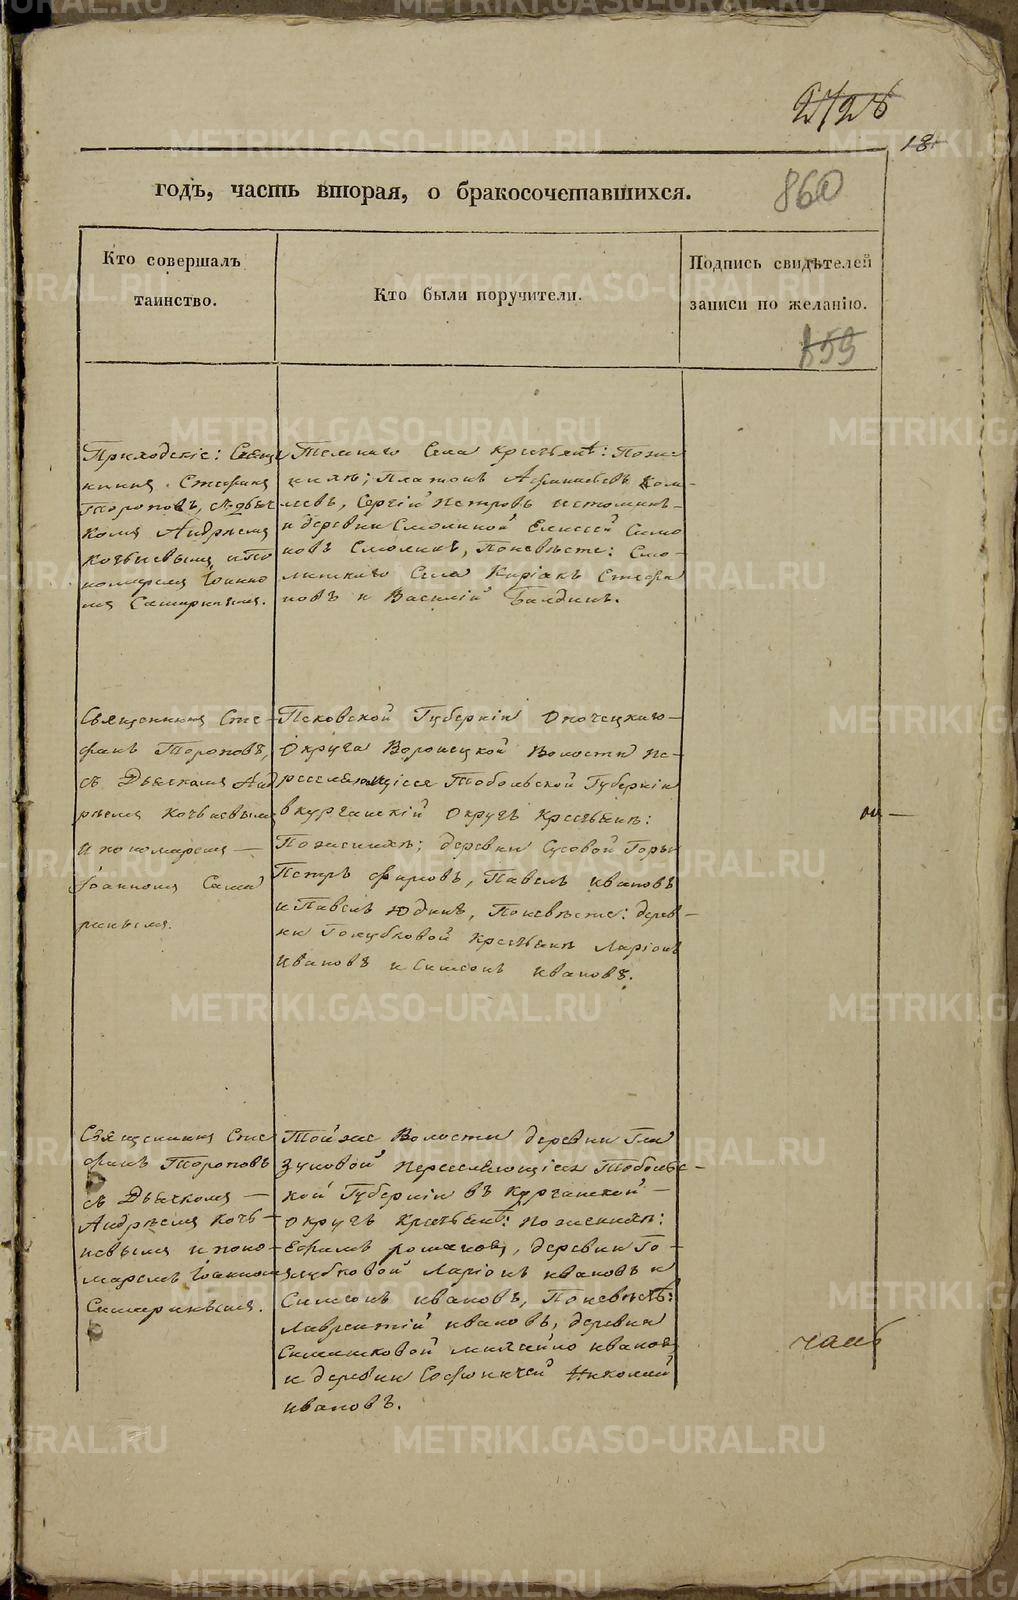 2728
18
годъ, часть вторая, о бракосочетавшихся.
860
Кто совершалъ
таинство.
Кто были поручители.
Подпись свидѣтелей
записи по желанію.
859
Приходскіе: Свяще
нникъ Стефанъ
Тороповъ, съ дьяч
комъ Андреемъ
Кочневымъ, и По
номаремъ Іоанно
мъ Самаринымъ.
Села Крестьяне: Поже
нихѣ; Платонъ
левъ, Сергій Петровъ Истоминъ
и деревни Смолиной Елисей Симо
новъ Смолинъ, Поневѣсте: Смо-
линскаго Села Киріакъ Стефа
новъ и Василій Балдинъ.
Священникъ Сте-
фанъ Тороповъ,
съ Дьячкомъ Анд
реемъ Кочневымъ
и пономаремъ
Іоанномъ Сама
ринымъ.
Псковской Губерніи Опочецкаго
Округа Воронецкой Волости пе-
реселяющіеся Тобольской Губерніи
в курганскій Округъ Крестьяне:
Поженихѣ; деревни Сусовой Горы
Петръ Фирсовъ, Павелъ Ивановъ
и Павелъ Юдинъ, Поневѣсте: дерев-
ни Голубковой Крестьяне Ларіонъ
Ивановъ и Симеонъ Ивановъ.
Священникъ Сте
фанъ Тороповъ
съ Дьячкомъ
Андреемъ Коч-
невымъ и поно-
маремъ Іоанномъ
Самаринымъ.
Той же Волости деревни Гла
зуновой Переселяющіеся Тобольс-
кой Губерніи въ Курганской
округъ Крестьяне: поженихѣ:
Ефимъ Романовъ, деревни Го-
лубковой Ларіонъ Ивановъ и
Симеонъ Ивановъ, Поневѣстѣ:
Лаврентій Ивановъ, деревни
Михайло Ивановъ
и деревни Николай
Ивановъ.
часъ
METRIKI.GASO-URAL.RU